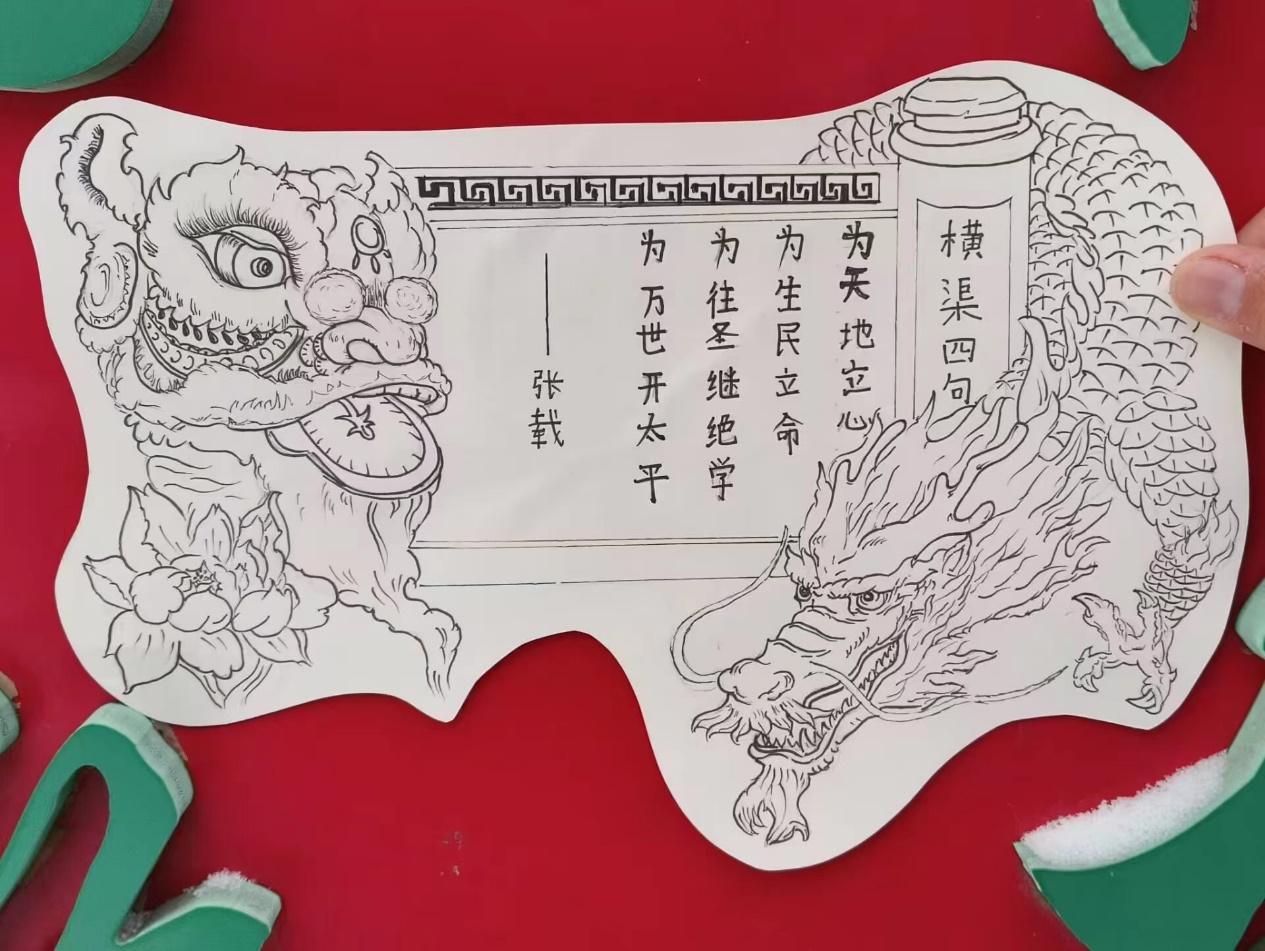 横渠四句
为天地立心
为生民立命
为往圣继绝学
为万世开太平
——张载